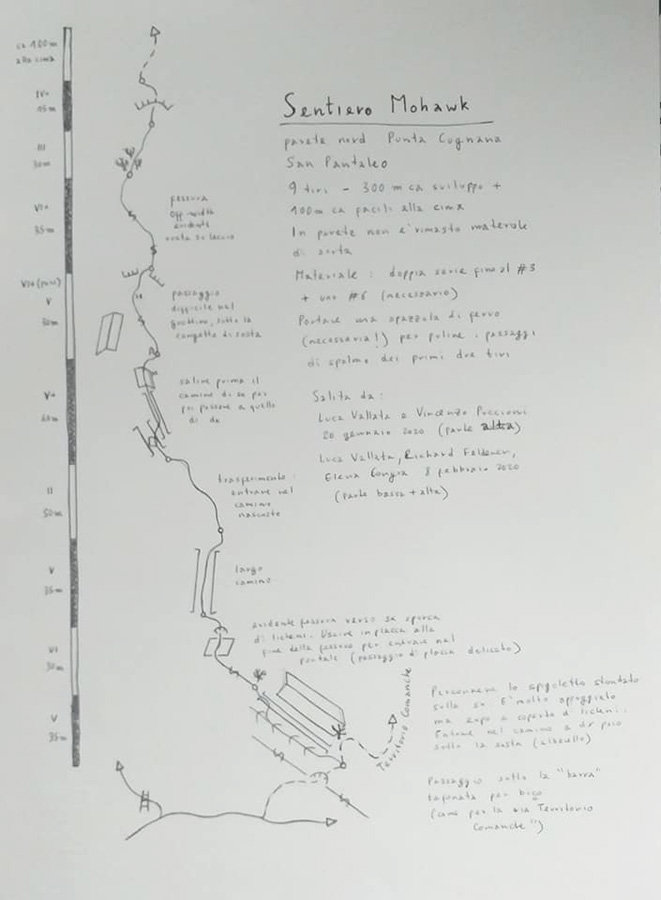 ca 100m
alla cima
IV+
45m
III
30m
VI+
35m
V
30m
V+
II
50m
V
35m
VI
30m
V
35m
fessura
off-width
evidente
passaggio
difficile nel
sotto la
di sosta
salire prima il
camino di sx per
poi passare a quello
di dx
trasferimento:
entrare nel
camino
nascosto
largo
camino
evidente fessura verso sx sporca
di licheni. Uscire in placca alla
fine della fessura per entrare nel
portale (passaggio di placca delicato)
Territorio Comanche
Sentiero Mohawk
parete nord Punta Cugnana
San Pantaleo
9 tiri - 300 m ca sviluppo +
100m ca facili alla cima
In parete non è rimasto materiale
di sorta
Materiale : doppia serie fino al #3
+ uno #6 (necessario)
Portare una spazzola di ferro
(necessaria!) per pulire i passaggi
di spalmo dei primi due tiri
Salita da :
Luca Vallata e Vincenzo
20 gennaio 2020 (parte alta)
Luca Vallata, Richard
Elena 8 febbraio 2020
(parte bassa + alta)
Percorrere lo spigoletto
sulla sx. E' molto appoggiato
ma expo e coperto di licheni.
Entrare nel camino a dx poco
sotto la sosta (alberello)
Passaggio sotto la "barra"
per
(come per la via Territorio
Comanche")